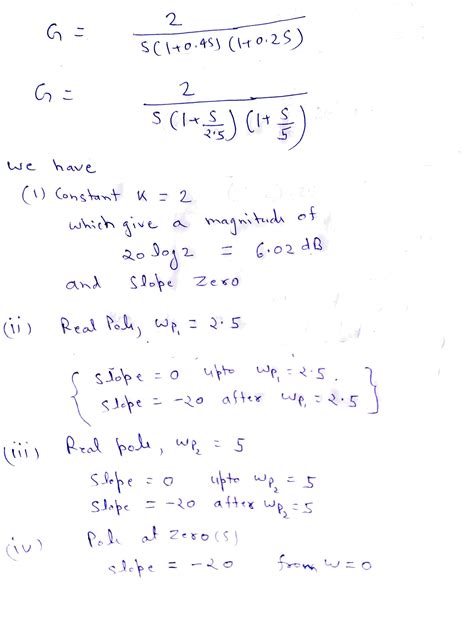 G = 2 / S(1+0.4S) (1+0.2S)
G = 2 / S(1+S/2.5) (1+S/5)
we have
(i) Constant K = 2
which give a magnitude of
20 log 2 = 6.02 dB
and slope zero
(ii) Real Pole, Wp1 = 2.5
{ slope = 0 upto Wp1 = 2.5.
slope = -20 after Wp1 = 2.5 }
(iii) Real pole, Wp2 = 5
Slope = 0 upto Wp2 = 5
Slope = -20 after Wp2 = 5
(iv) Pole at zero(s)
slope = -20 from W = 0